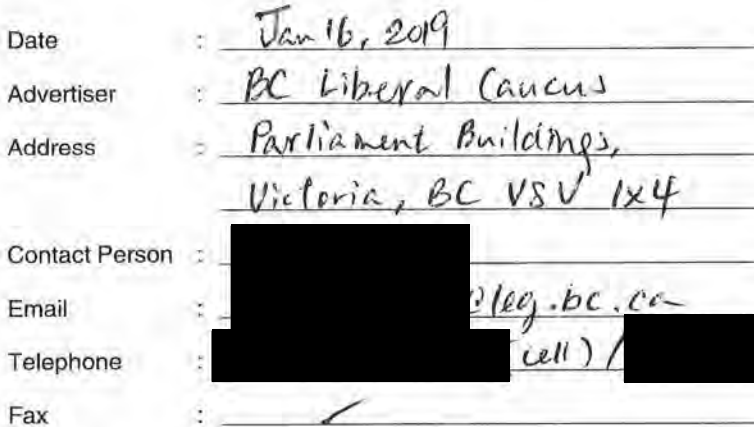 Date : Jan 16, 2019
Advertiser : BC Liberal Caucus
Address : Parliament Buildings,
Victoria, BC V8V 1x4
Contact Person :
Email : @leg.bc.ca
Telephone : cell) /
Fax :